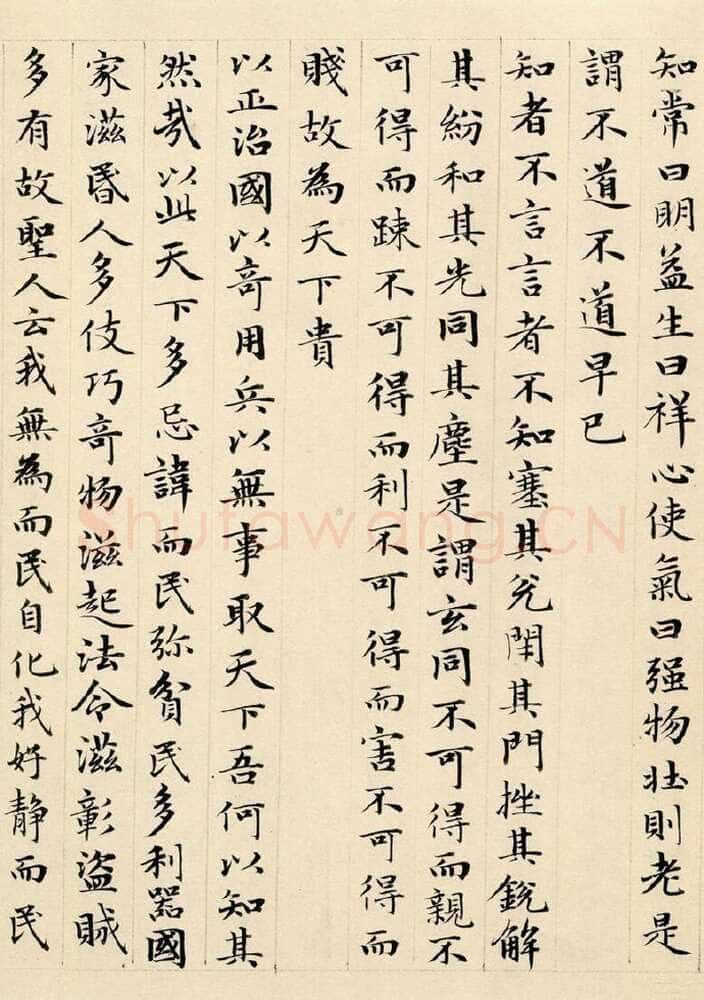 知常曰明益生曰祥心使氣曰强物壯則老是
謂不道不道早已
知者不言言者不知塞其兊閇其門挫其銳解
其紛和其光同其塵是謂玄同不可得而親不
可得而踈不可得而利不可得而害不可得而
賤故為天下貴
以正治國以竒用兵以無事取天下吾何以知其
然哉以此天下多忌諱而民弥貧民多利器國
家滋昬人多伎巧竒物滋起法令滋彰盜賊
多有故聖人云我無為而民自化我好静而民
Shufawang.CN